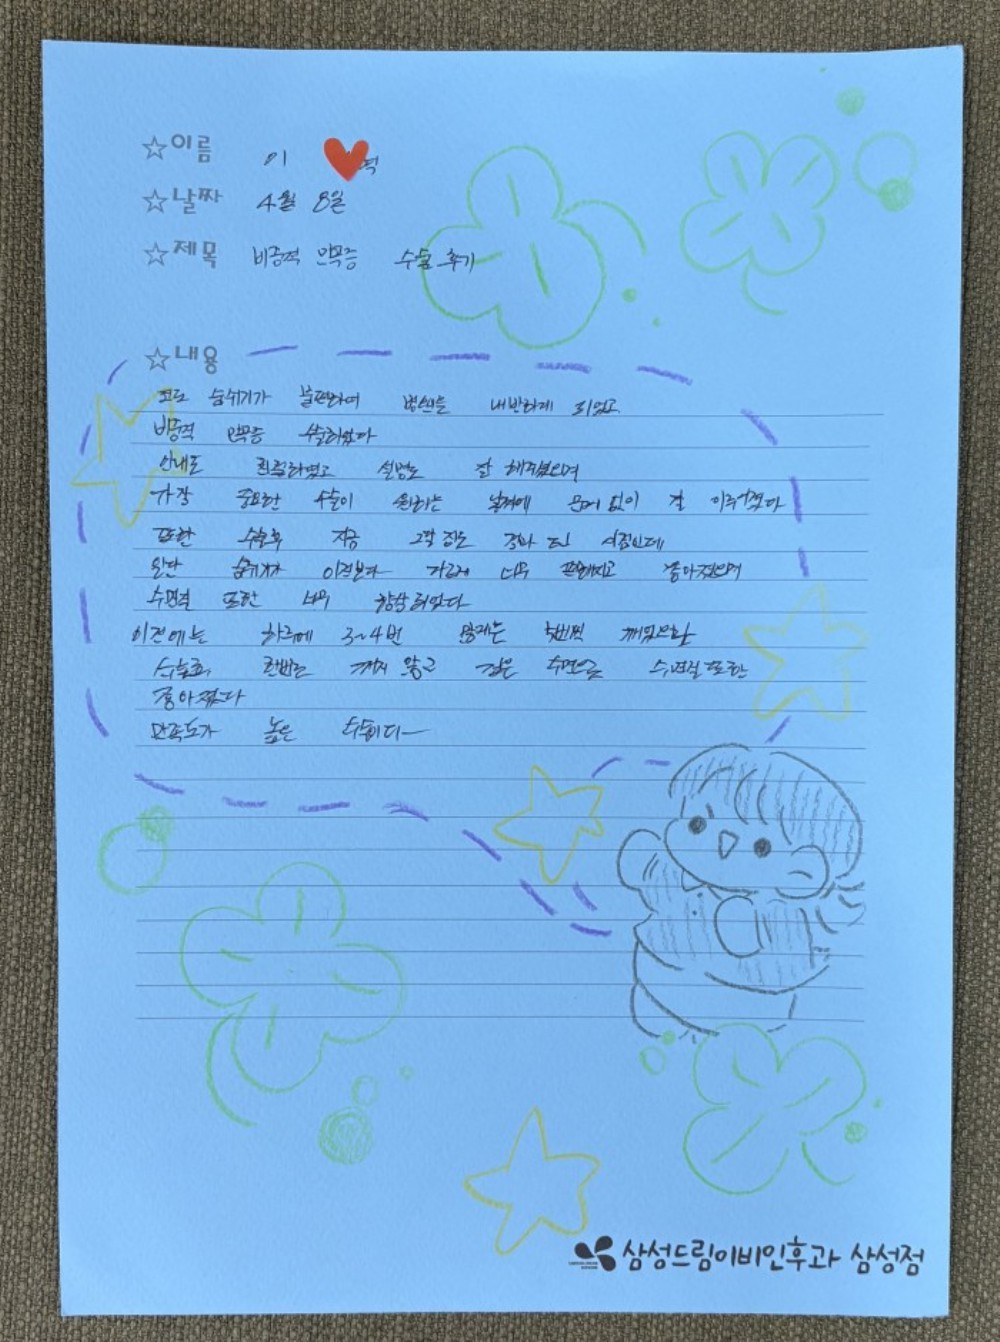 ☆이름 이 혁
☆날짜 4월 8일
☆제목 비중격 만곡증 수술 후기
☆내용
코로 숨쉬기가 불편하여 병원을 내반하게 되었고
비중격 만곡증 수술하였다
안내도 친절하였고 설명도 잘 해주셨으며
가장 중요한 수술이 원하는 날짜에 문제 없이 잘 이루어졌다
또한 수술후 지금 2주 정도 경과 된 시점인데
일단 숨쉬기가 이전보다 너무 편해지고 좋아졌으며
수면력 또한 너무 향상되었다
이전에는 하루에 3~4번 많게는 5번씩 깨었으나
수술후 한번도 깨지 않고 깊은 수면으로 수면질 또한
좋아졌다
만족도가 높은 수술이다
삼성드림이비인후과 삼성점